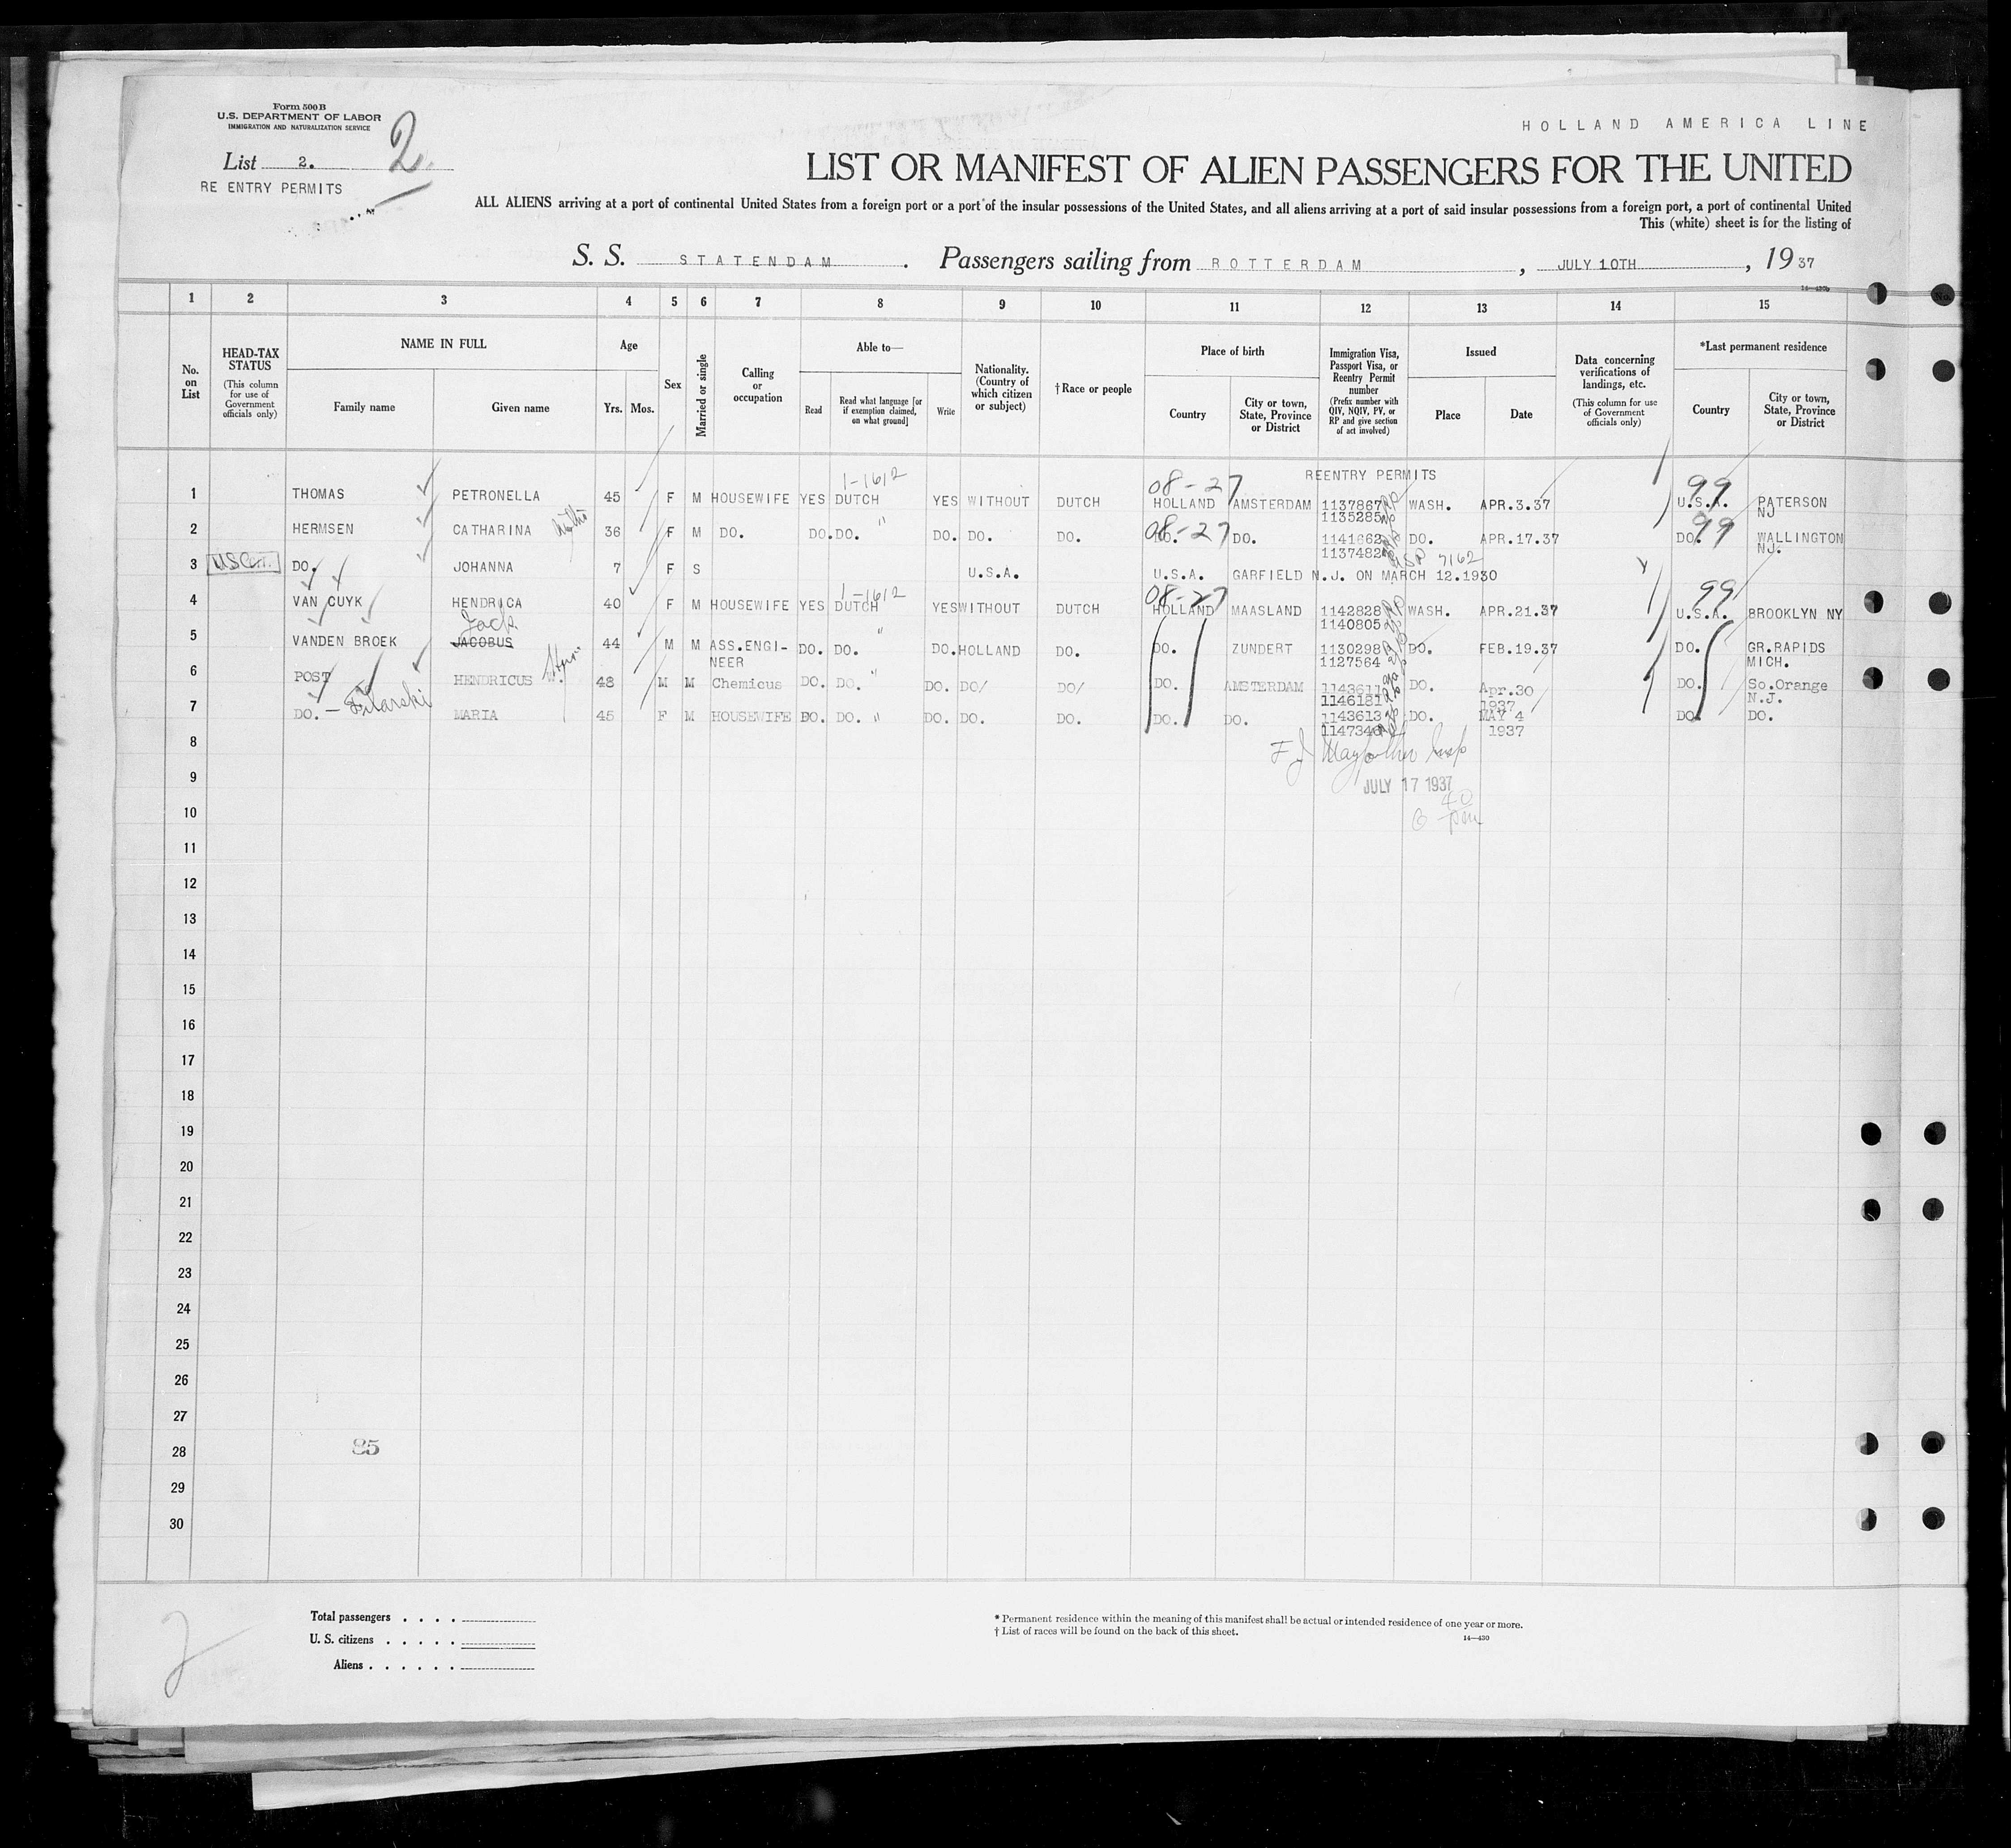 Form 500 B
U.S. DEPARTMENT OF LABOR
IMMIGRATION AND NATURALIZATION SERVICE
HOLLAND AMERICA LINE
List 2. 2
RE ENTRY PERMITS
LIST OR MANIFEST OF ALIEN PASSENGERS FOR THE UNITED
ALL ALIENS arriving at a port of continental United States from a foreign port or a port of the insular possessions of the United States, and all aliens arriving at a port of said insular possessions from a foreign port, a port of continental United
This (white) sheet is for the listing of
S. S. STATENDAM . Passengers sailing from ROTTERDAM , JULY 10TH , 19 37
14—430b
1 2 3 4 5 6 7 8 9 10 11 12 13 14 15
No. on List
HEAD-TAX STATUS
(This column for use of Government officials only)
NAME IN FULL
Family name
Given name
Age
Yrs. Mos.
Sex
Married or single
Calling or occupation
Able to—
Read
Read what language [or if exemption claimed, on what ground]
Write
Nationality. (Country of which citizen or subject)
†Race or people
Place of birth
Country
City or town, State, Province or District
Immigration Visa, Passport Visa, or Reentry Permit number
(Prefix number with QIV, NQIV, PV, or RP and give section of act involved)
Issued
Place
Date
Data concerning verifications of landings, etc.
(This column for use of Government officials only)
*Last permanent residence
Country
City or town, State, Province or District
1-1612 08-27 REENTRY PERMITS 99
1 THOMAS PETRONELLA 45 F M HOUSEWIFE YES DUTCH YES WITHOUT DUTCH HOLLAND AMSTERDAM 1137867 WASH. APR.3.37 U.S.A. PATERSON
1135285 NJ
2 HERMSEN CATHARINA 36 F M DO. DO. DO. " DO. DO. DO. 08-27 DO. DO. 1141662 DO. APR.17.37 DO. 99 WALLINGTON
1137482 NJ.
3 DO. JOHANNA 7 F S U.S.A. U.S.A. GARFIELD N.J. ON MARCH 12.1930
7162
1-1612 08-27 99
4 VAN CUYK HENDRICA 40 F M HOUSEWIFE YES DUTCH YES WITHOUT DUTCH HOLLAND MAASLAND 1142828 WASH. APR.21.37 U.S.A. BROOKLYN NY
1140805
Jack
5 VANDEN BROEK JACOBUS 44 M M ASS.ENGI- DO. DO. " DO. HOLLAND DO. DO. ZUNDERT 1130298 DO. FEB.19.37 DO. GR.RAPIDS
NEER 1127564 MICH.
6 POST HENDRICUS W. 48 M M Chemicus DO. DO. " DO. DO/ DO/ DO. AMSTERDAM 1143611 DO. Apr.30 DO. So.Orange
1146181 1937 N.J.
7 DO. — Filarski MARIA 45 F M HOUSEWIFE DO. DO. " DO. DO. DO. DO. DO. 1143613 DO. MAY 4 DO. DO.
1147346 1937
8
9
JULY 17 1937
10
11
12
13
14
15
16
17
18
19
20
21
22
23
24
25
26
27
28 85
29
30
2
Total passengers . . . .
U. S. citizens . . . . .
Aliens . . . . . .
* Permanent residence within the meaning of this manifest shall be actual or intended residence of one year or more.
† List of races will be found on the back of this sheet.
14—430